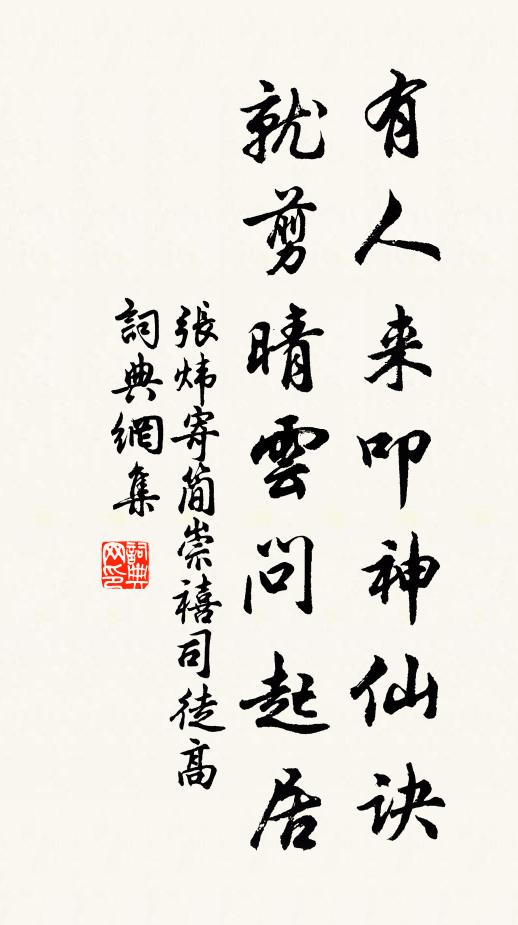 有人来叩神仙诀
就剪晴雲問起居
張炜寄简崇禧司徒高
詞典網集
詞典网印